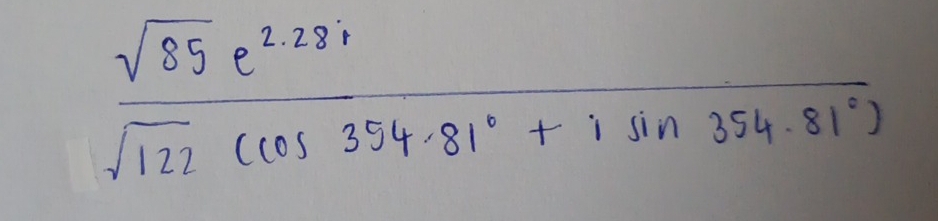 √85 e^2.28i
√122 (cos 354.81° + i sin 354.81°)